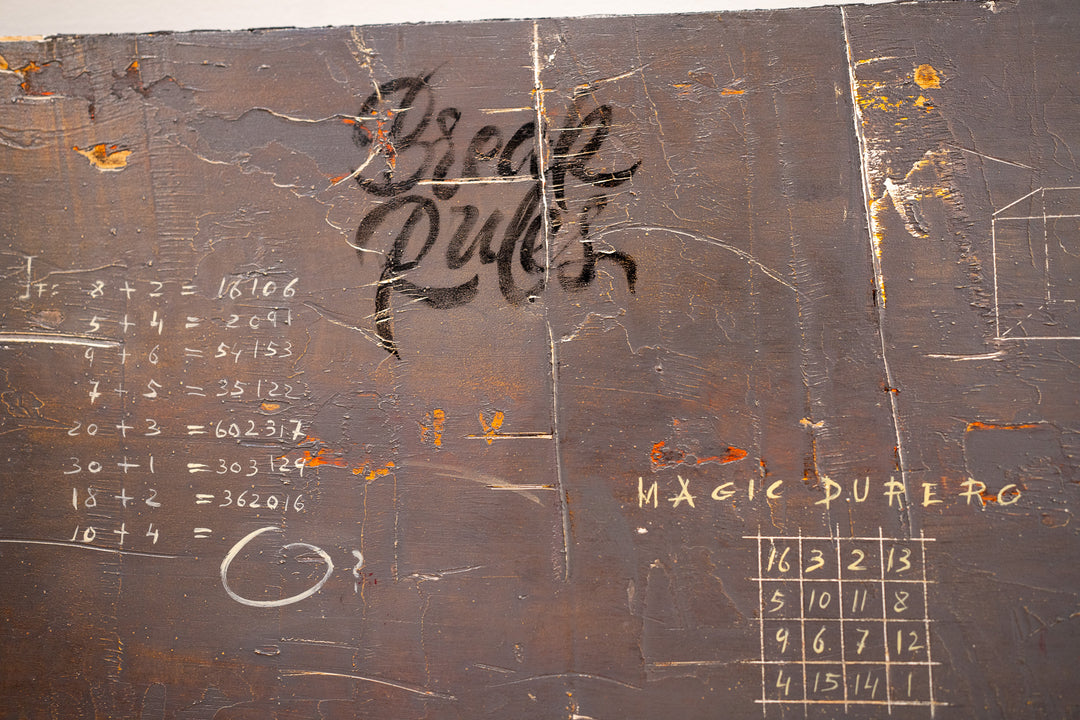 Break
Rules
IF: 8 + 2 = 16106
5 + 4 = 2091
9 + 6 = 54153
7 + 5 = 35122
20 + 3 = 602317
30 + 1 = 303129
18 + 2 = 362016
10 + 4 = ?
MAGIC DURERO
16 3 2 13
5 10 11 8
9 6 7 12
4 15 14 1